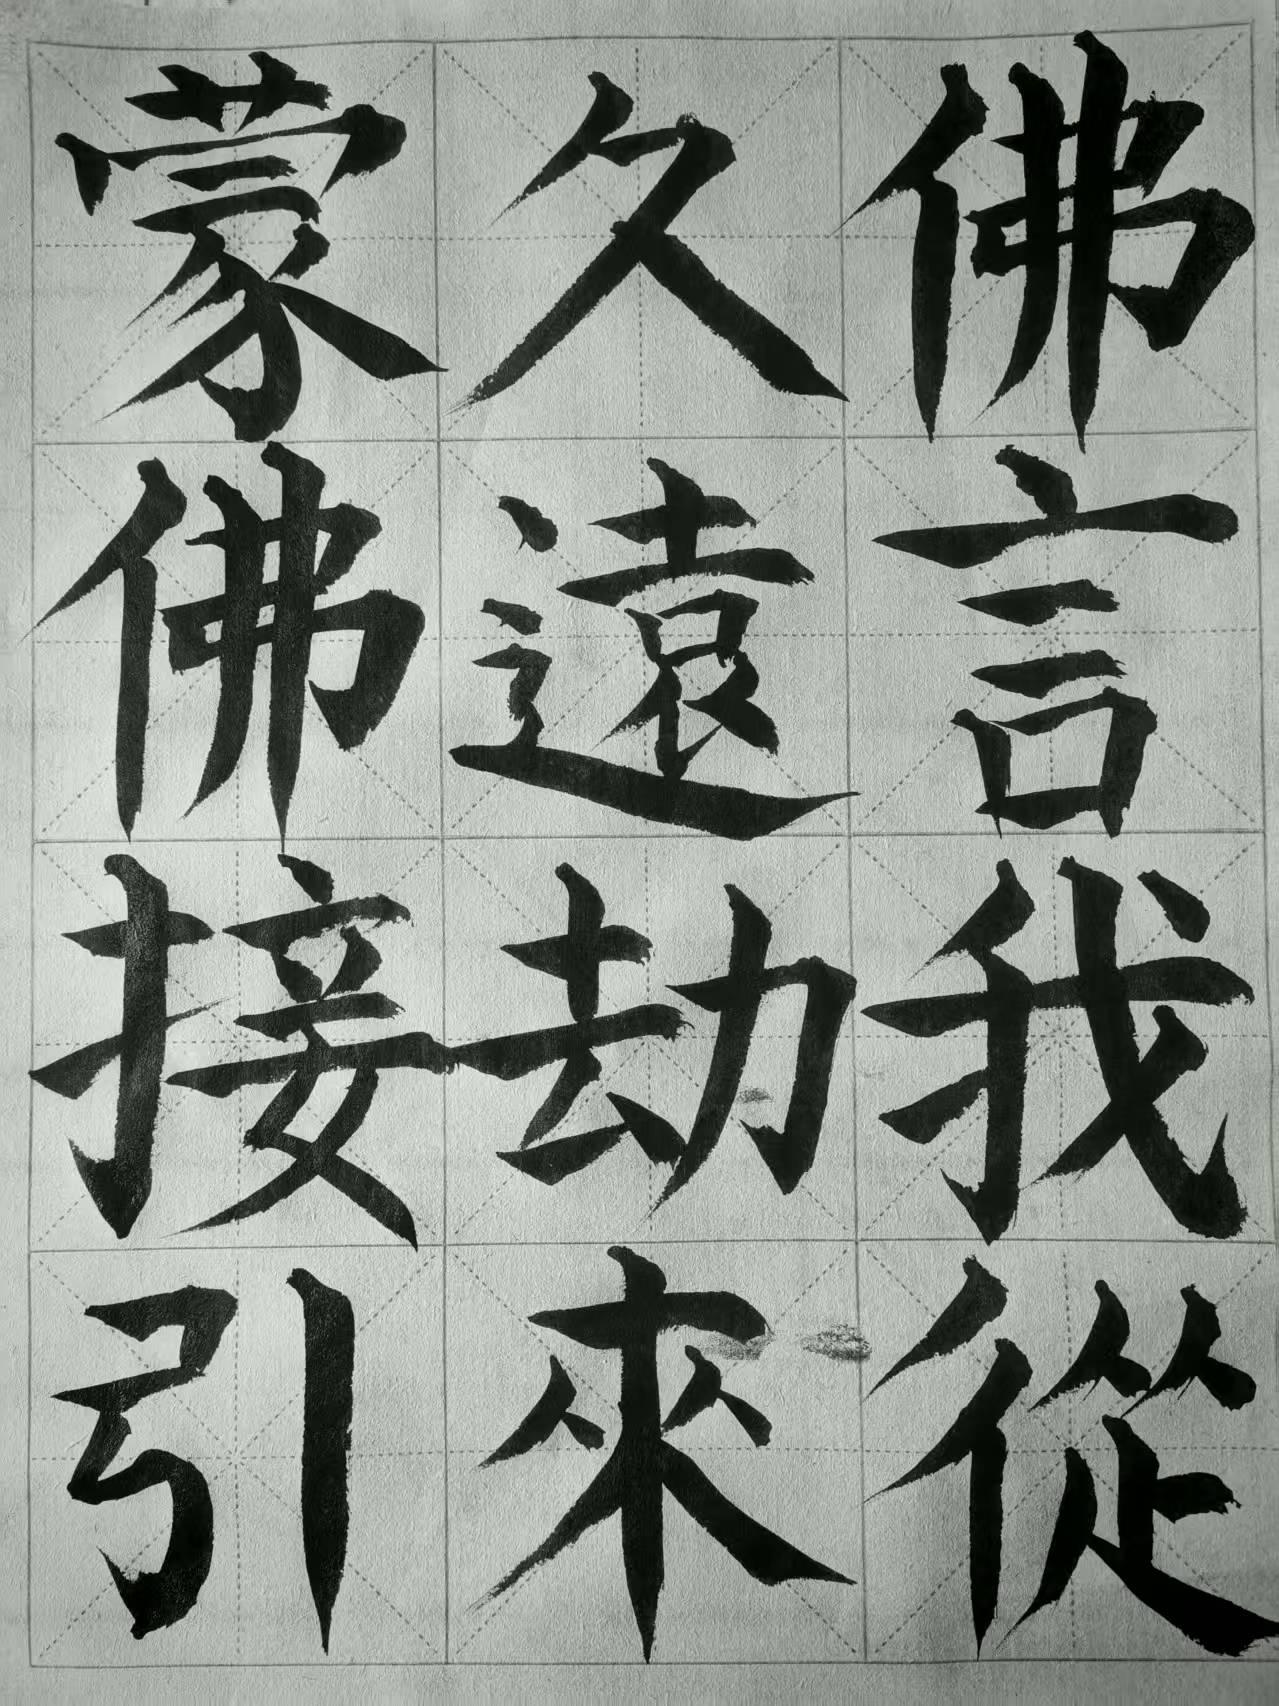 佛言我從
久遠劫來
蒙佛接引